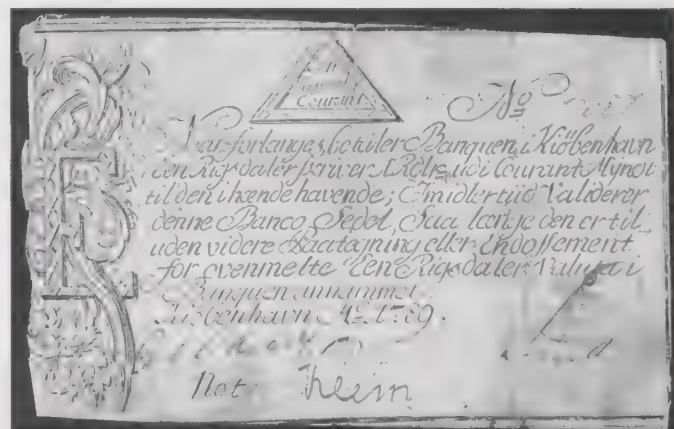 Courant
No
Naar forlanges, betaler Banquen i Kiöbenhavn
een Rigsdaler skriver 1 Rdlr udi Courant Mynt
til den ihænde havende; Imidlertiid Validerer
denne Banco Sedel, Saa længe den er til,
uden videre Paategning eller Endossement
for ovenmelte Een Rigsdaler Valuta i
Banquen annammet.
Kiöbenhavn Ao 1789.
Not Klein